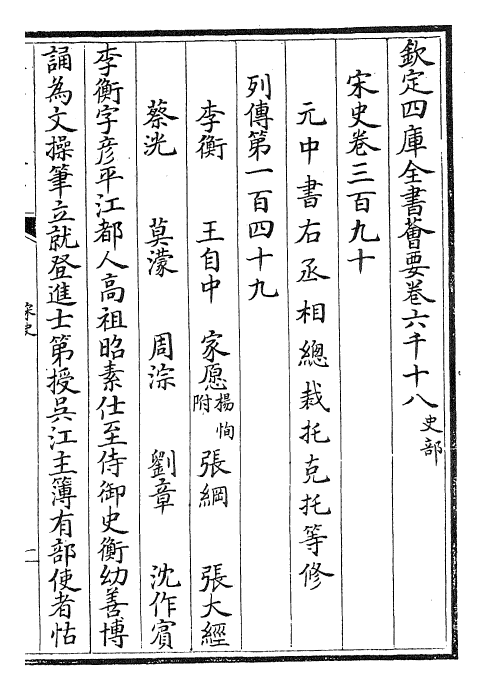 欽定四庫全書薈要卷六千十八 史部
宋史卷三百九十
元中書右丞相總裁托克托等修
列傳第一百四十九
李衡 王自中 家愿 楊恂附 張綱 張大經
蔡洸 莫濛 周淙 劉章 沈作賓
李衡字彥平江都人高祖昭素仕至侍御史衡幼善博
誦為文操筆立就登進士第授吳江主簿有部使者怙
宋史
一